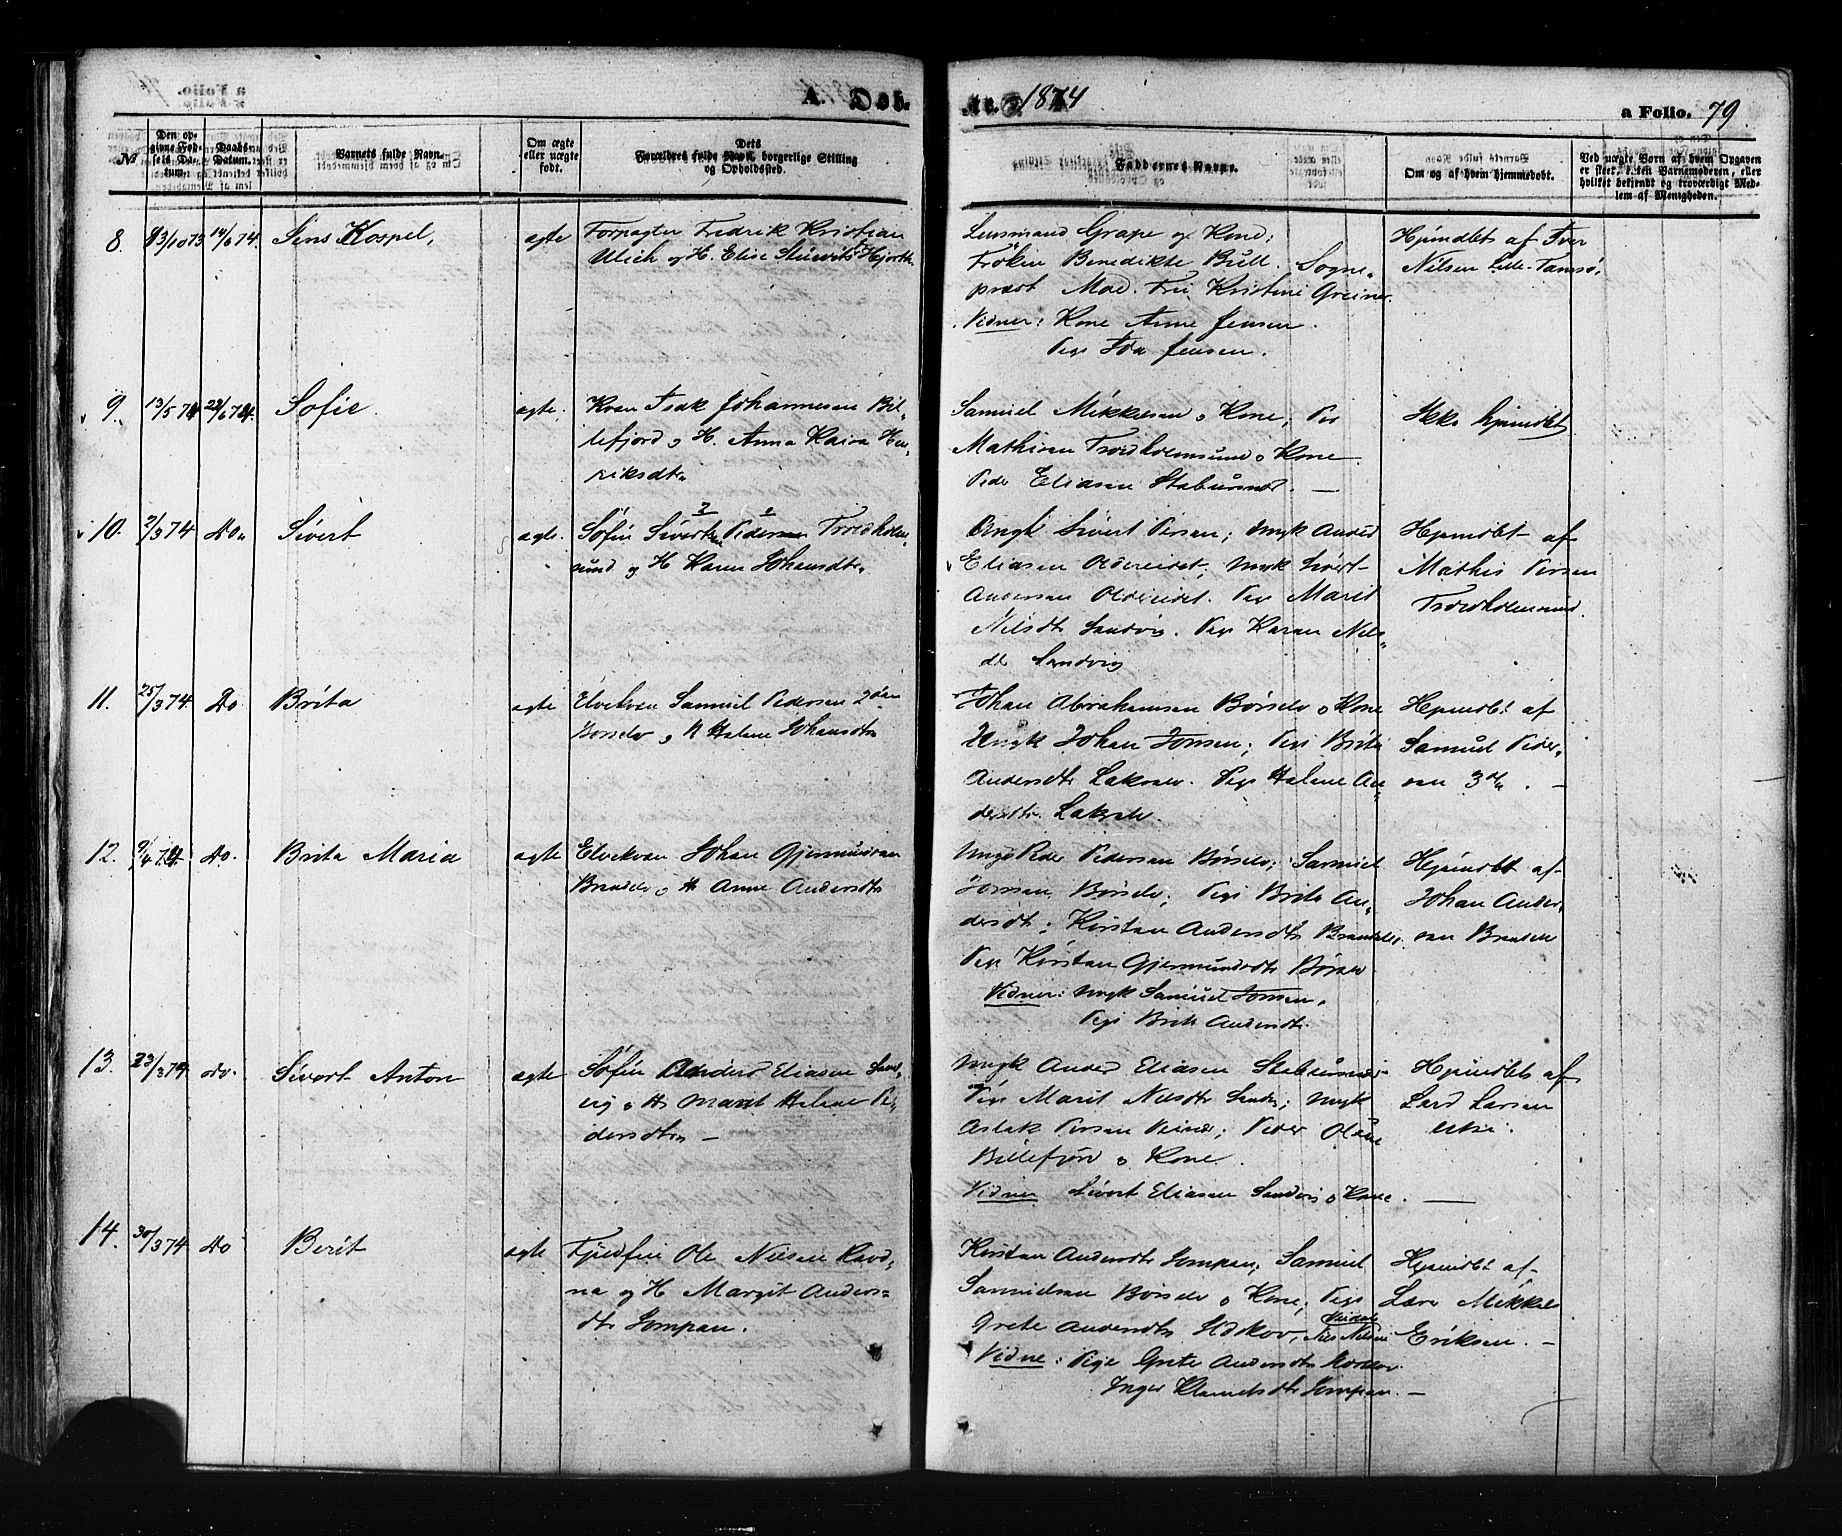 A. Døb.
Aar 1874
a Folio. 79.
№
Den opgivne Fødsels Datum.
Daabs-Datum.
Barnets fulde Navn.
Om ægte eller uægte født.
Dets
Forældres fulde Navn, borgerlige Stilling og Opholdssted.
Faddernes Navne.
Om og af hvem hjemmedøbt.
Ved uægte Børn af hvem Opgaven er skeet, i.e. en Barnemoderen, eller hvilket bekjendt og troværdigt Medlem af Menigheden.
8. 13/10 73 14/6 74. Jens Kospel, ægte
Forpagter Fredrik Kristian
Ulich og H. Elise Hjorth
Lensmand Grape og Kone;
Frøken Benedikte Bull. Sogne-
præst Moe. Kristine Greiner
Vidner: Kone Anne Jensen.
Pige Ida Jensen.
Hjmdbt af Iver
Nilsen Lille-Tamsø.
9. 13/5 74 28/6 74. Sofie ægte.
Kvæn Isak Johannesen Bil-
lefjord og H. Anna Kaisa Hen-
riksdtr
Samuel Mikkelsen o Kone; Per
Mathisen Troldholmsund o Kone.
Peder Eliasen Stabursnæs. —
Ikke hjmdbt
10. 2/3 74 Do. Sivert ægte.
Søfin Sivert Pedersen Troldholm-
sund og H Karen Johansdtr.
Ungk Sivert Persen; Ungk Anders
Eliasen Oldereidet; Ungk Sivert
Andersen Oldereidet. Pige Marit
Nilsdtr Sandvig. Pige Karen Nils-
dtr Sandvig
Hjemdbt af
Mathis Persen
Troldholmsund.
11. 25/3 74. Do Brita ægte
Elvekvæn Samuel Pedersen 2den
Børselv og H Helene Johansdtr
Johan Abrahamsen Børselv o Kone
Ungk Johan Jonsen; Pige Brita
Andersdtr Lakselv. Pige Helene An-
dersdtr. Lakselv.
Hjemdbt af
Samuel Peder-
sen 3die. —
12. 9/4 74 Do. Brita Maria ægte
Elvekvæn Johan Gjermundsen
Brenelv og H Anne Andersdtr
Ungk Peder Pedersen Børselv; Samuel
Jonsen Børselv; Pige Brita An-
dersdtr; Kirstan Andersdtr Brenelv.
Pige Kirstan Gjermundsdtr Børselv
Vidner: Ungk Samuel Jonsen.
Pige Brita Andersdtr.
Hjemdbt af
Johan Ander-
sen Brenelv
13. 23/3 74. do. Sivert Anton ægte
Søfin Anders Eliasen Sand-
vig o H Marit Helene Pe-
dersdtr —
Ungk Anders Eliasen Stabursnæs
Pige Marit Nilsdtr Sandvig; Ungk
Aslak Persen; Peder Olsen
Billefjord o Kone.
Vidner Sivert Eliasen Sandvig o Kone. —
Hjemdbt af
Lars Larsen
14. 30/3 74 Do Berit ægte
Fjeldfin Ole Nilsen Ravd-
na og H Margit Anders-
dtr Jompan.
Kirstan Andersdtr Jompan; Samuel
Samuelsen Børselv o Kone; Pige
Grete Andersdtr; Nils Nilsen
Vidne: Pige Grete Andersdtr
Inger Klemetsdtr Jompan. —
Hjemdbt af
Lærer Mikkel
Eriksen. —